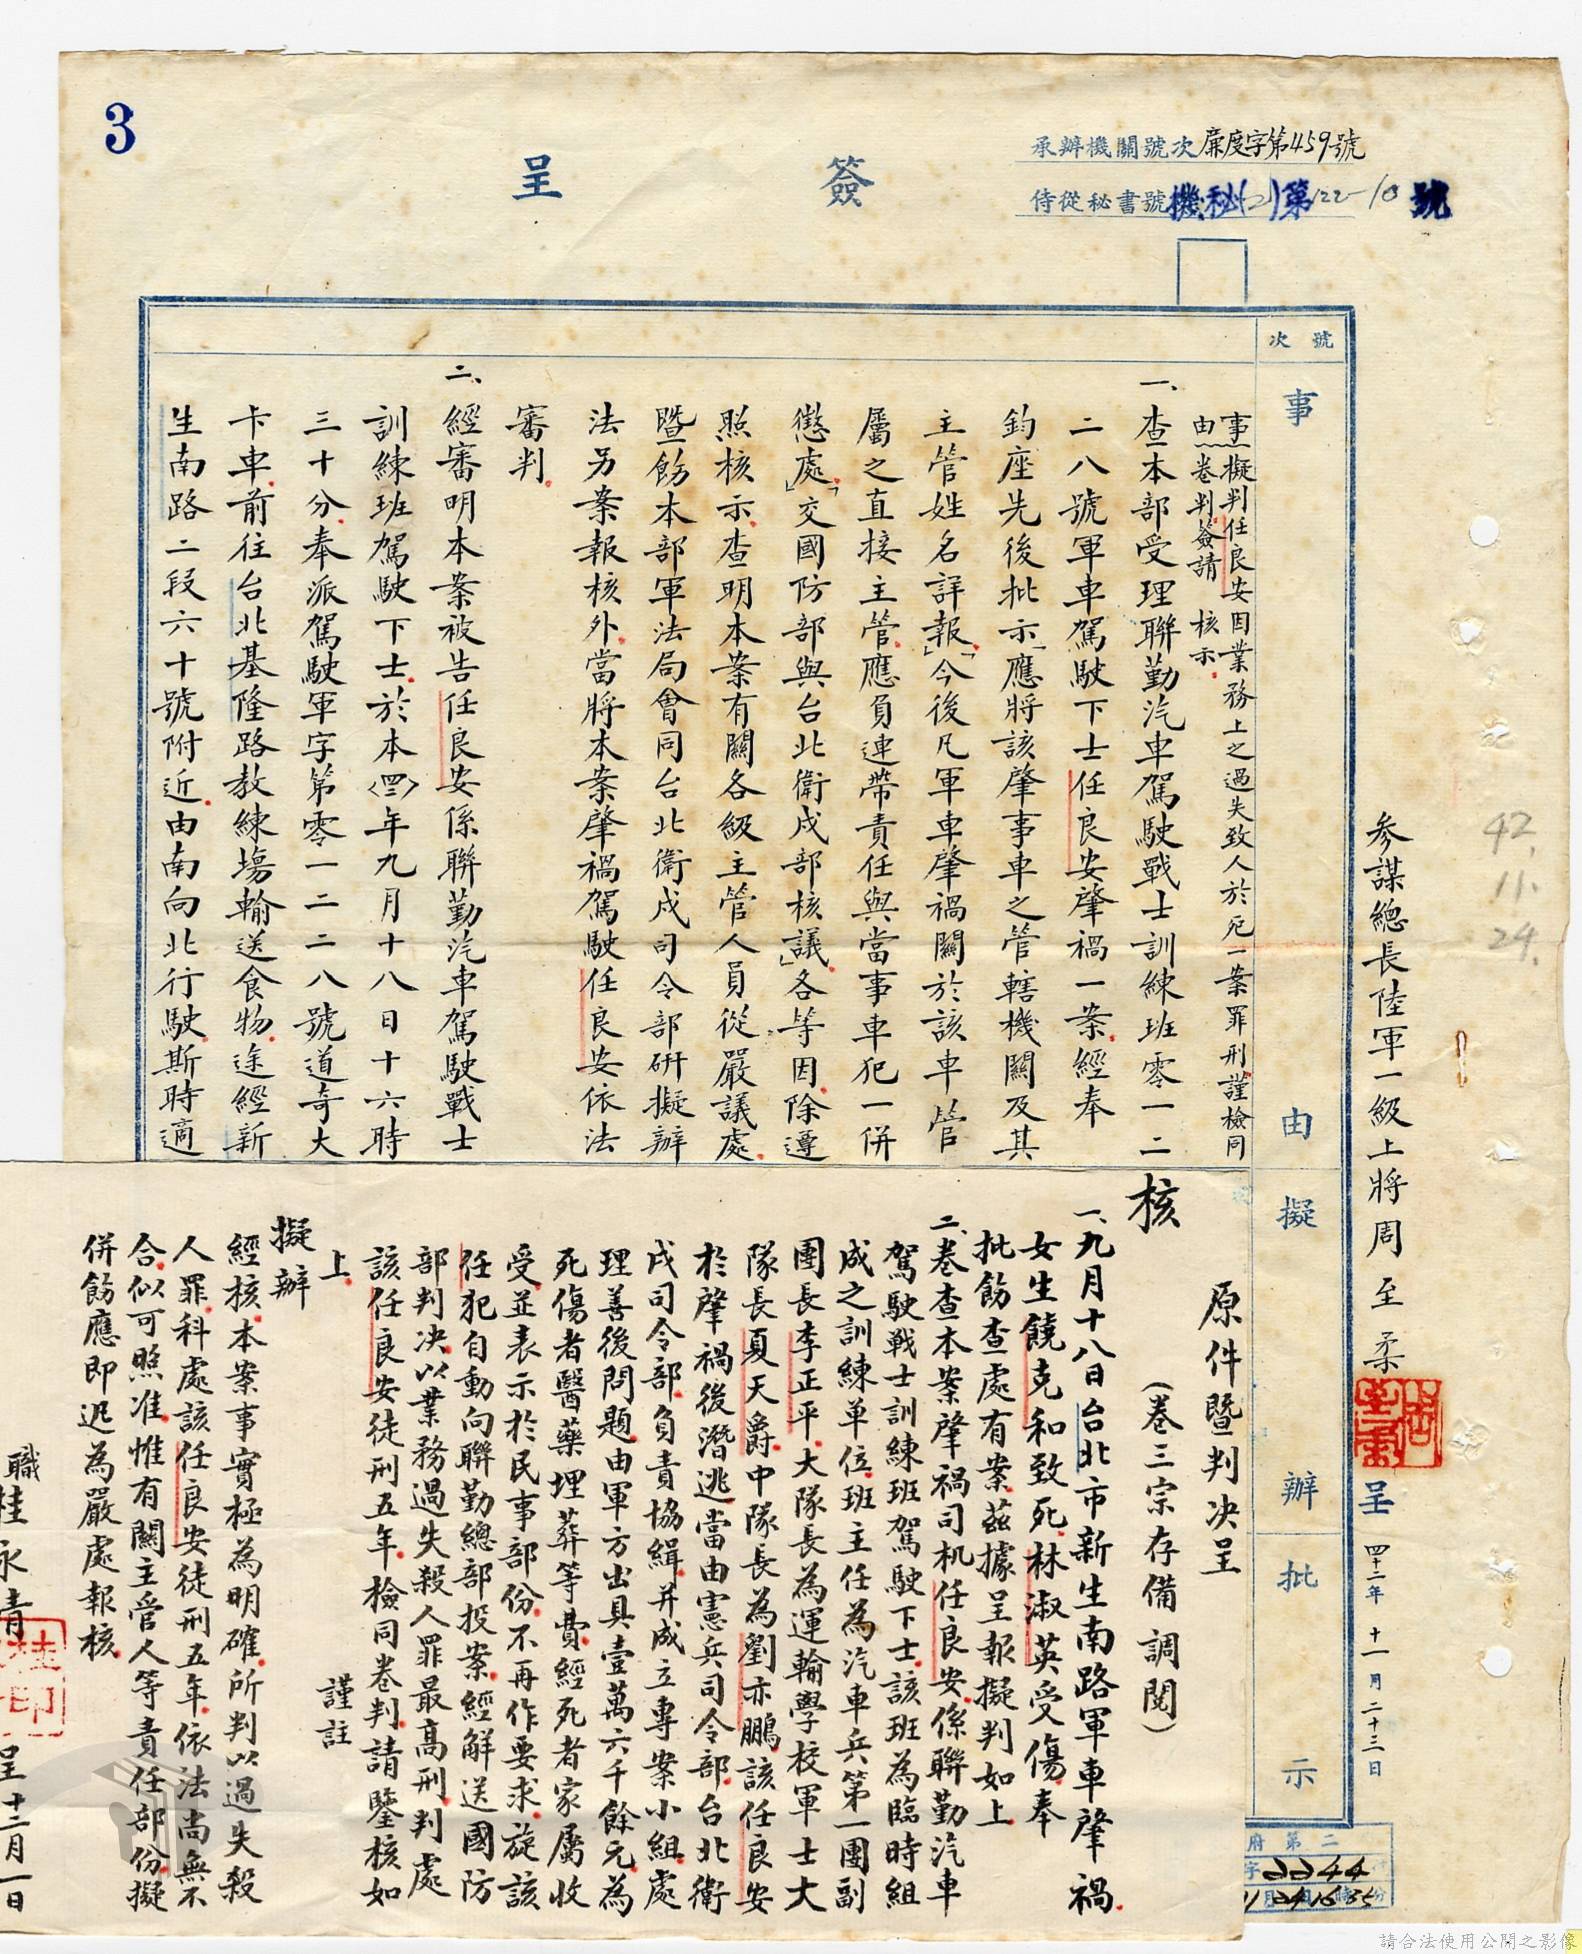 3
簽呈
承辦機關號次廉度字第459號
侍從秘書號機秘(2)第122-10號
號次
事由
擬辦
批示
參謀總長陸軍一級上將周至柔呈 四十二年十一月二十三日
42.11.24.
事由：擬判任良安因業務上之過失致人於死一案罪刑謹檢同
卷判簽請　核示
一、查本部受理聯勤汽車駕駛戰士訓練班零一二
二八號軍車駕駛下士任良安肇禍一案經奉
鈞座先後批示「應將該肇事車之管轄機關及其
主管姓名詳報」「今後凡軍車肇禍關於該車管
屬之直接主管應負連帶責任與當事車犯一併
懲處」「交國防部與台北衛戍部核議」各等因除遵
照核示查明本案有關各級主管人員從嚴議處
暨飭本部軍法局會同台北衛戍司令部研擬辦
法另案報核外當將本案肇禍駕駛任良安依法
審判
二、經審明本案被告任良安係聯勤汽車駕駛戰士
訓練班駕駛下士於本〈四二〉年九月十八日十六時
三十分奉派駕駛軍字第零一二二八號道奇大
卡車前往台北基隆路教練場輸送食物途經新
生南路二段六十號附近由南向北行駛斯時適
原件暨判決呈
核　（卷三宗存備調閱）
一、九月十八日台北市新生南路軍車肇禍
女生饒克和致死林淑英受傷奉
批飭查處有案茲據呈報擬判如上
二、卷查本案肇禍司机任良安係聯勤汽車
駕駛戰士訓練班駕駛下士該班為臨時組
成之訓練單位班主任為汽車兵第一團副
團長李正平大隊長為運輸學校軍士大
隊長夏天爵中隊長為劉亦鵬該任良安
於肇禍後潛逃當由憲兵司令部台北衛
戍司令部負責協緝并成立專案小組處
理善後問題由軍方出具壹萬六千餘元為
死傷者醫藥埋葬等費經死者家屬收
受並表示於民事部份不再作要求旋該
任犯自動向聯勤總部投案經解送國防
部判決以業務過失殺人罪最高刑判處
該任良安徒刑五年檢同卷判請鑒核如
上　謹註
擬辦
經核本案事實極為明確所判以過失殺
人罪科處該任良安徒刑五年依法尚無不
合似可照准惟有關主管人等責任部份擬
併飭應即迅為嚴處報核
職桂永清 呈十二月一日
府第二
字2244
11月24 16時35分
請合法使用公開之影像